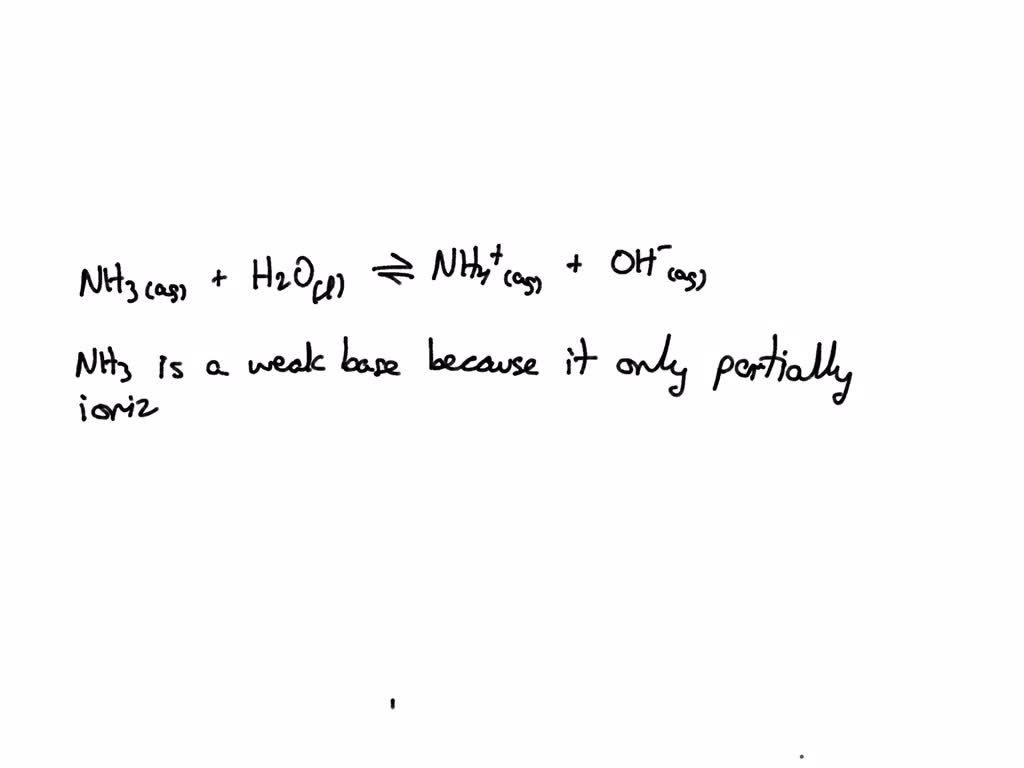 NH₃(aq) + H₂O(l) ⇌ NH₄⁺(aq) + OH⁻(aq)
NH₃ is a weak base because it only partially
ioniz